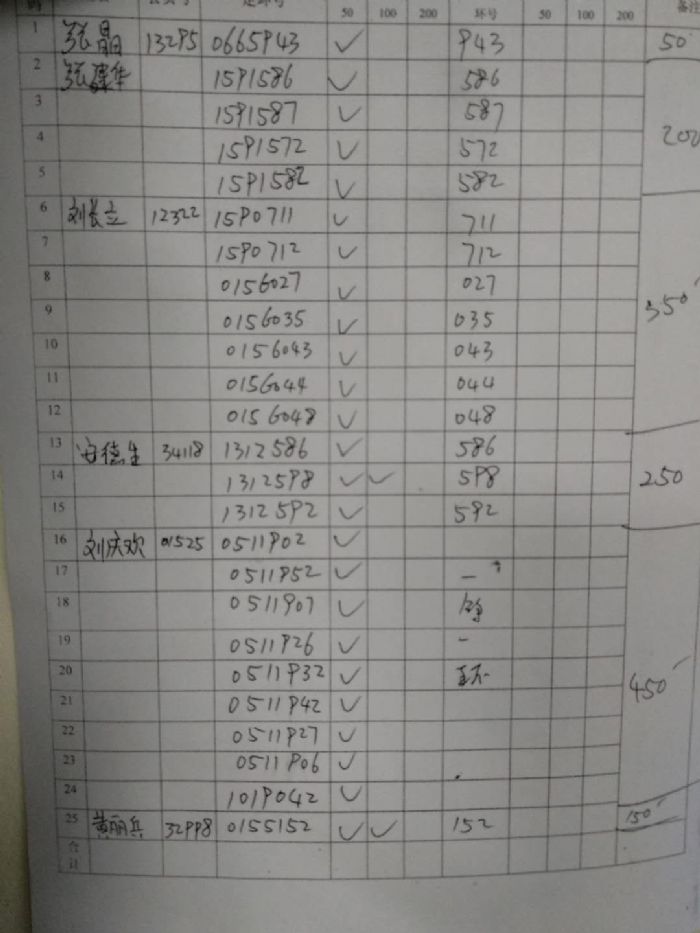 50 100 200 环号 50 100 200 备注
1 张晶 13295 0665943 ✓ 943 50
2 张建华 1591586 ✓ 586
3 1591587 ✓ 587
4 1591572 ✓ 572 200
5 1591582 ✓ 582
6 刘长立 12322 1590711 ✓ 711
7 1590712 ✓ 712
8 0156027 ✓ 027
9 0156035 ✓ 035 350
10 0156043 ✓ 043
11 0156044 ✓ 044
12 0156048 ✓ 048
13 安德生 34118 1312586 ✓ 586
14 1312598 ✓ ✓ 598 250
15 1312592 ✓ 592
16 刘庆欢 01525 0511902 ✓
17 0511952 ✓ 一
18 0511907 ✓
19 0511926 ✓ 一
20 0511932 ✓ 环 450
21 0511942 ✓
22 0511927 ✓
23 0511906 ✓
24 1019042 ✓
25 黄丽兵 32998 0155152 ✓ ✓ 152 150
合计